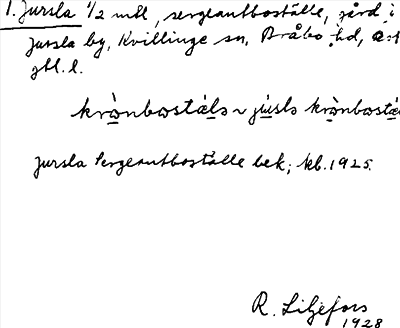 1. Jursla 1/2 mtl, sergeantboställe, gård i
Jursla by, Kvillinge sn, Bråbo hd,
gtl. l.
krònbostáls ~ jùsls krònbostá
Jursla Sergeantboställe bek; kb. 1925.
R. Liljefors
1928